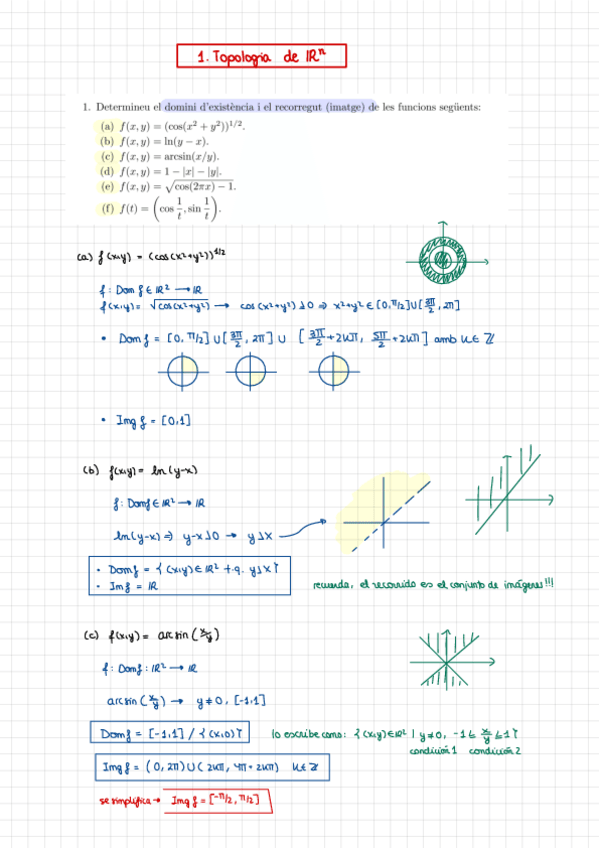 1. Topologia de ℝⁿ
1. Determineu el domini d'existència i el recorregut (imatge) de les funcions següents:
(a) f(x, y) = (cos(x² + y²))^{1/2}.
(b) f(x, y) = ln(y − x).
(c) f(x, y) = arcsin(x/y).
(d) f(x, y) = 1 − |x| − |y|.
(e) f(x, y) = √(cos(2πx) − 1).
(f) f(t) = (cos 1/t, sin 1/t).
(a) f(x,y) = (cos(x²+y²))^{1/2}
f: Dom f ∈ ℝ² → ℝ
f(x,y) = √(cos(x²+y²)) → cos(x²+y²) ≥ 0 ⇒ x²+y² ∈ [0, π/2] ∪ [3π/2, 2π]
• Dom f = [0, π/2] ∪ [3π/2, 2π] ∪ [3π/2 + 2kπ, 5π/2 + 2kπ] amb k ∈ ℤ
• Img f = [0,1]
(b) f(x,y) = ln(y-x)
f: Dom f ∈ ℝ² → ℝ
ln(y-x) ⇒ y-x > 0 → y > x
• Dom f = { (x,y) ∈ ℝ² t.q. y > x }
• Im f = ℝ
recuerda, el recorrido es el conjunto de imágenes!!!
(c) f(x,y) = arcsin (x/y)
f: Dom f: ℝ² → ℝ
arcsin (x/y) → y ≠ 0, [-1,1]
Dom f = [-1,1] / { (x,0) }
lo escribe como: { (x,y) ∈ ℝ² | y ≠ 0, -1 ≤ x/y ≤ 1 }
condición 1 condición 2
Img f = (0, 2π) ∪ (2kπ, 4π + 2kπ) k ∈ ℤ
se simplifica → Img f = [-π/2, π/2]